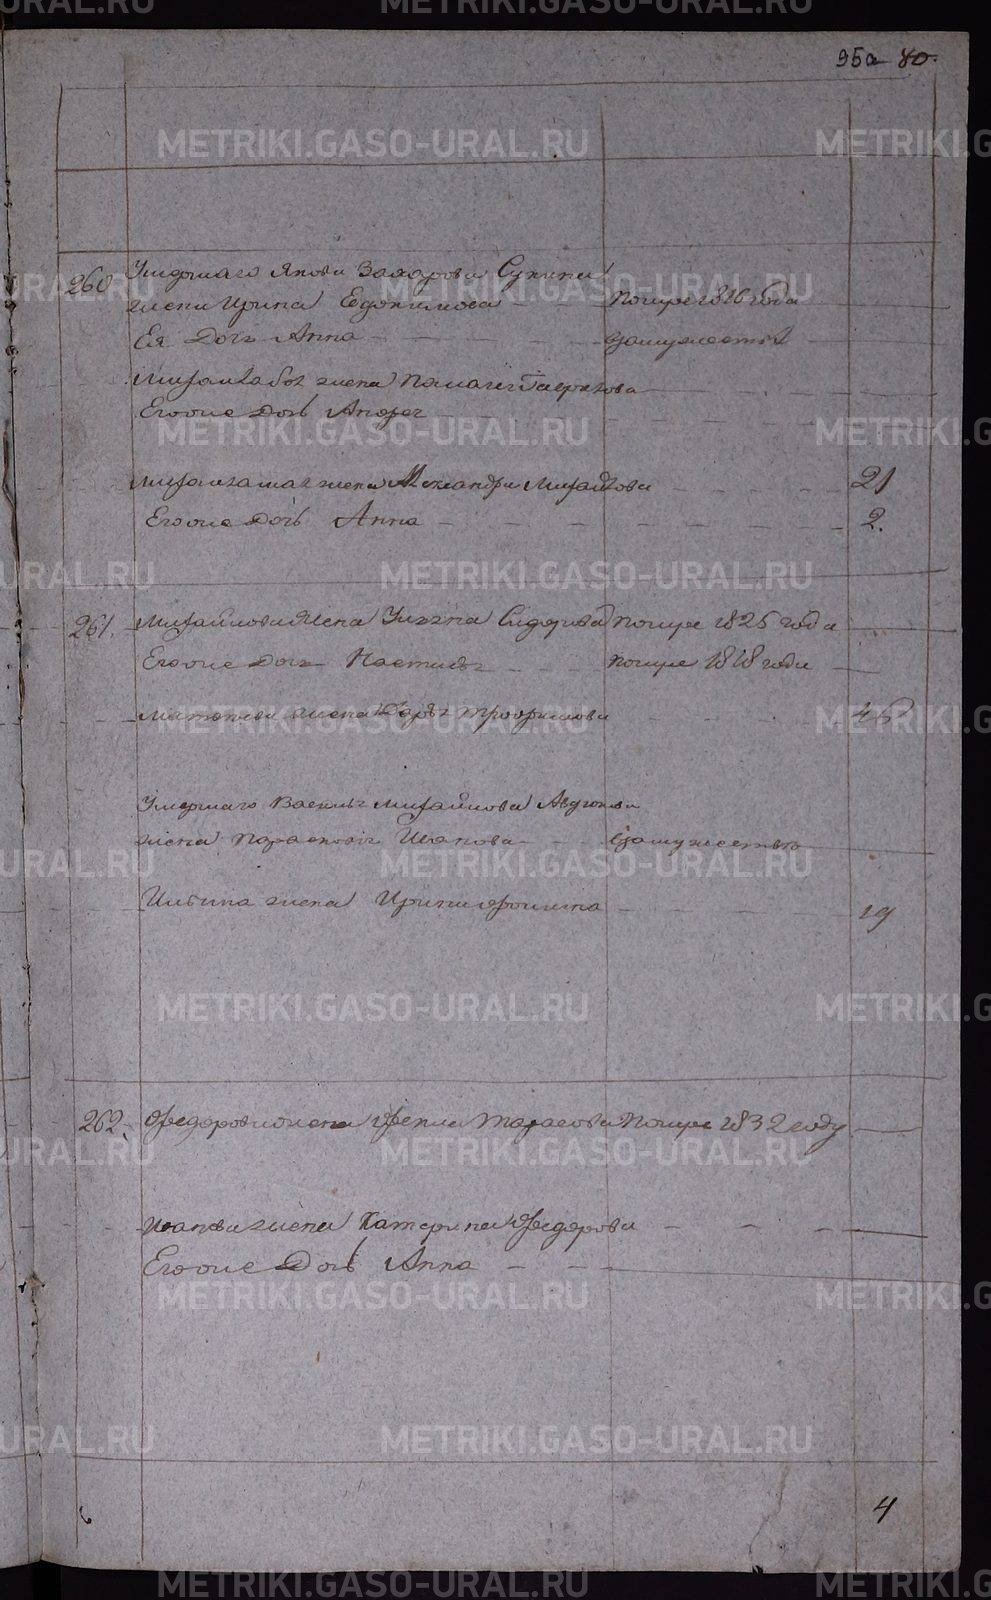 95а 80.
260 Умершаго Якова Захарова Сунина
жена Ирина Евдокимова - помре 1816 года
Ея дочь Анна - - - - взамужестве
жена Пелагея
Егоже дочь
жена Александра Михайлова - - - - 21
Егоже дочь Анна - - - - - 2.
261. Михайлова жена Сидорова помре 1825 года
Егоже дочь Настасья - - помре 1818 года
Матвеева жена Дарья Трофимова - - - 46
Умершаго Василья Михайлова
жена Парасковья Иванова - - взамужестве
Ильина жена Ирина - - - - 19
262. Федорова жена Фекла Тарасова помре 1832 году
Иванова жена Катерина Федорова - - - -
Егоже дочь Анна - - -
4
METRIKI.GASO-URAL.RU